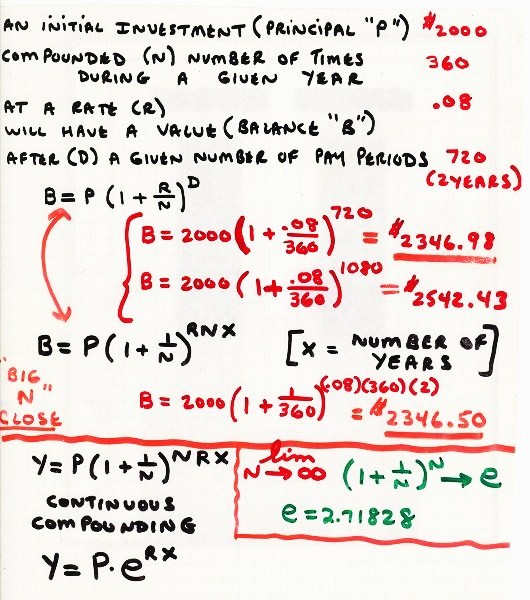 AN INITIAL INVESTMENT (PRINCIPAL "P") $2000
COMPOUNDED (N) NUMBER OF TIMES 360
DURING A GIVEN YEAR
AT A RATE (R) .08
WILL HAVE A VALUE (BALANCE "B")
AFTER (D) A GIVEN NUMBER OF PAY PERIODS 720
(2 YEARS)
B = P (1 + R/N)^D
B = 2000 (1 + .08/360)^720 = $2346.98
B = 2000 (1 + .08/360)^1080 = $2542.43
B = P (1 + 1/N)^RNX [X = NUMBER OF YEARS]
"BIG N" CLOSE
B = 2000 (1 + 1/360)^(.08)(360)(2) = $2346.50
Y = P (1 + 1/N)^NRX
lim N→∞ (1 + 1/N)^N → e
CONTINUOUS
COMPOUNDING
e = 2.71828
Y = P · e^RX